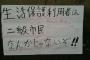 生活保護利用者は
二級市民
なんかじゃないぞ!!